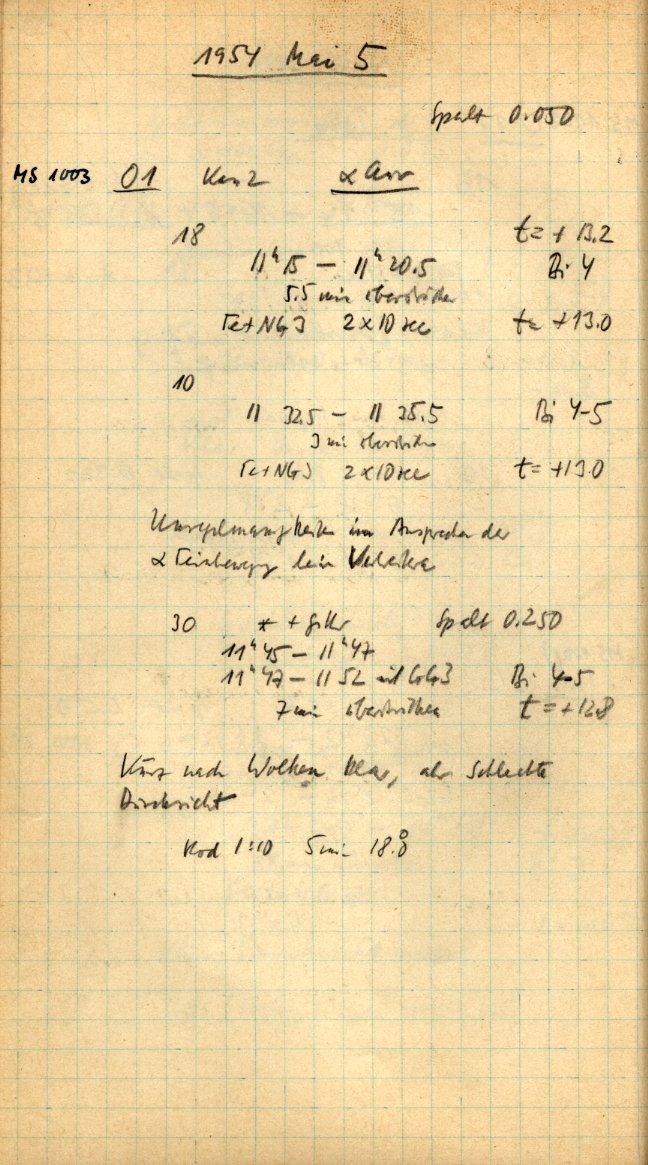 1954 Mai 5
Spalt 0.050
MS 1003 01 α Aur
18 t = + 13.2
11ʰ 15 — 11ʰ 20.5 Bi 4
5.5 min überstrichen
Fe + NG3 2 x 10 sec t = +13.0
10
11 32.5 — 11 35.5 Bi 4-5
3 min überstrichen
Fe + NG3 2 x 10 sec t = +13.0
Unregelmässigkeiten im Ansprechen der
α Feinbewegung beim
30 * + Gitter Spalt 0.250
11ʰ 45 — 11ʰ 47
11ʰ 47 — 11 52 mit GG3 Bi 4-5
7 min überstrichen t = +12.8
Kurz nach Wolken klar, aber schlechte
Durchsicht
Rod 1:10 5 min 18.8